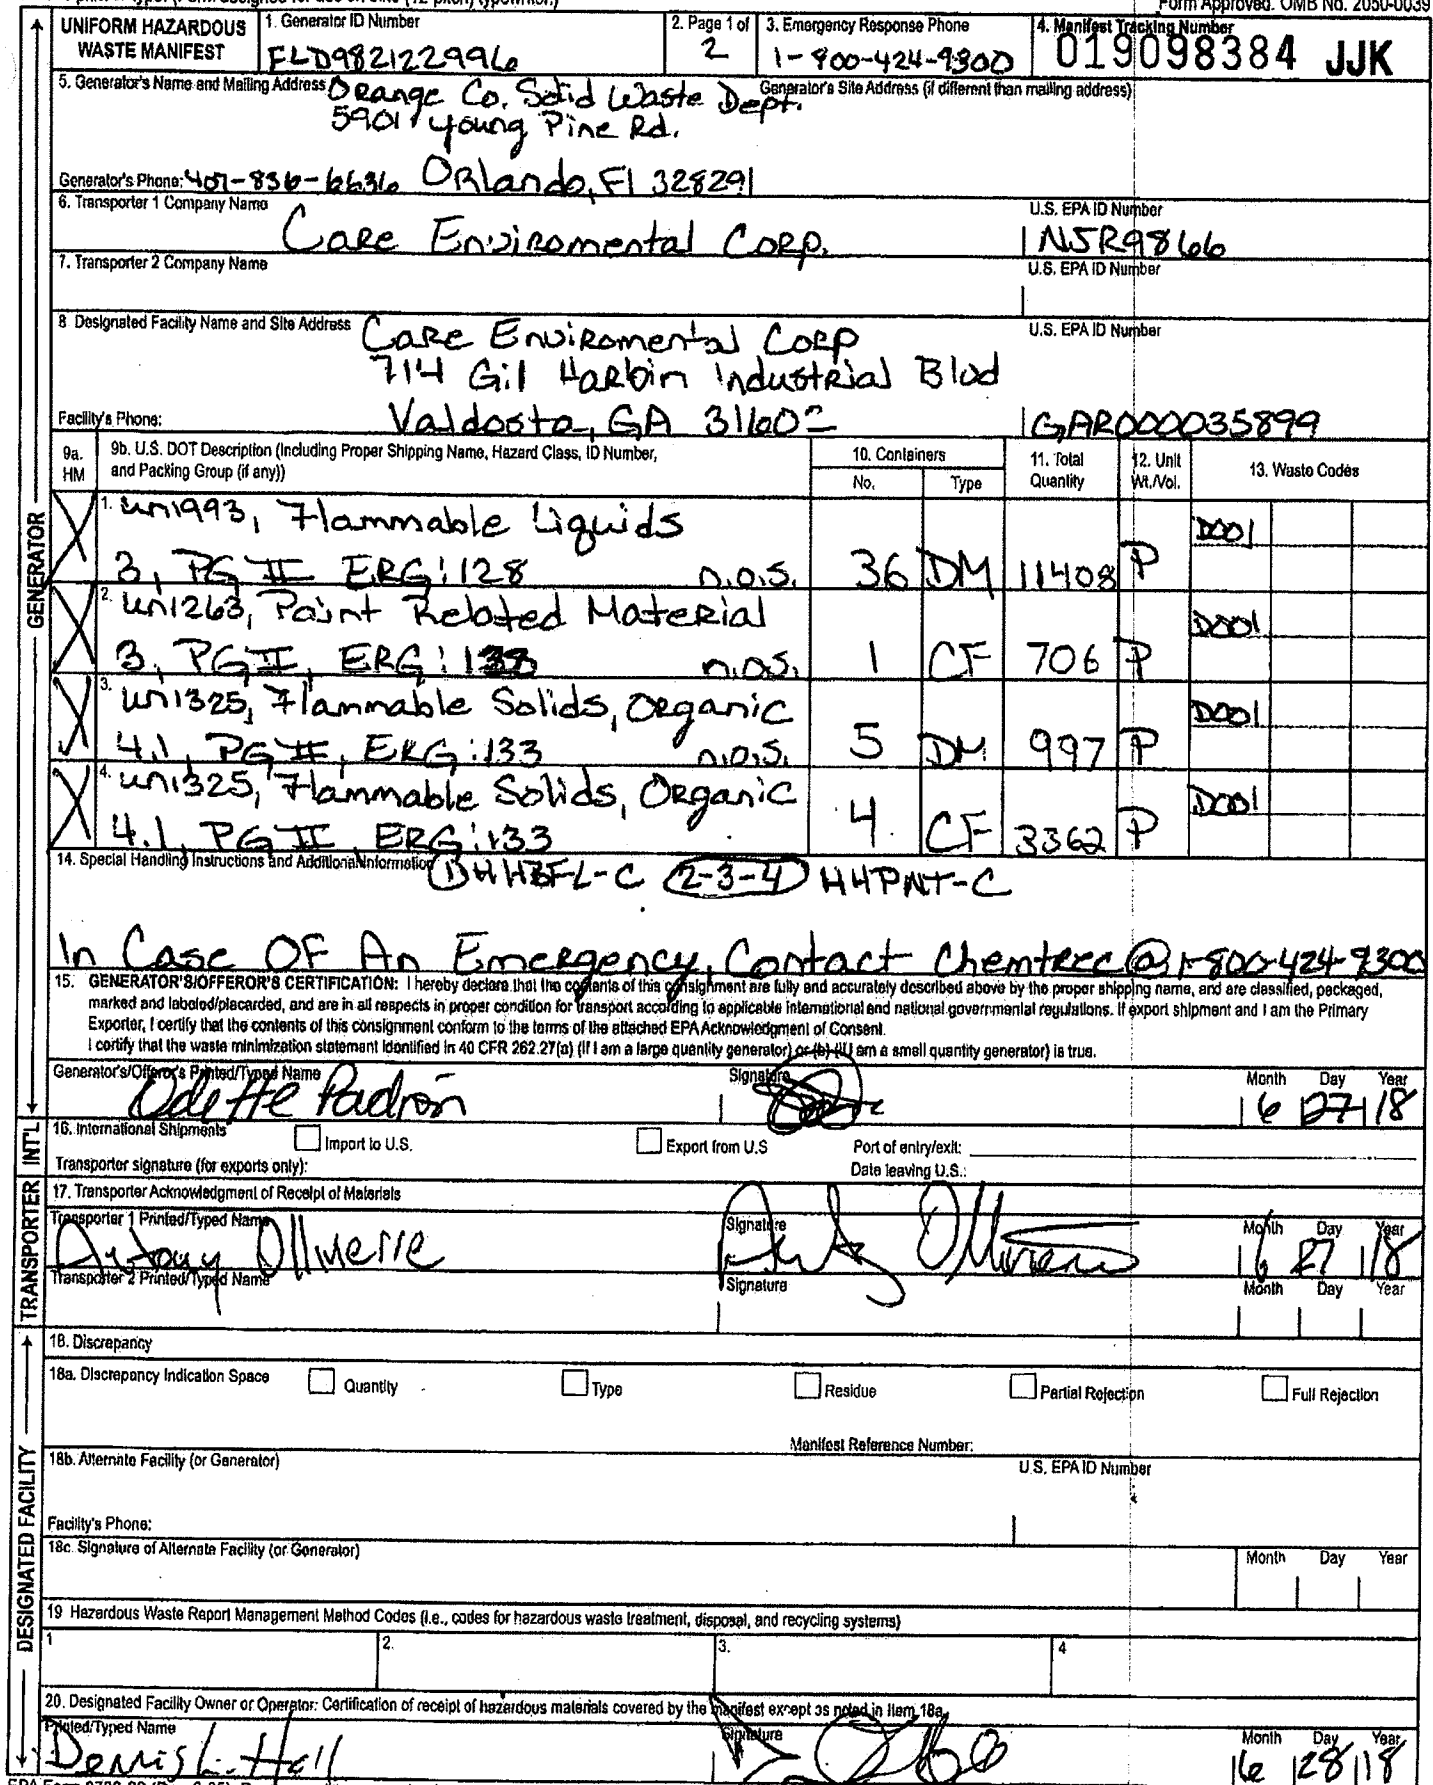 Form Approved. OMB No. 2050-0039
UNIFORM HAZARDOUS WASTE MANIFEST
1. Generator ID Number
FLD982122996
2. Page 1 of
2
3. Emergency Response Phone
1-800-424-9300
4. Manifest Tracking Number
019098384 JJK
5. Generator's Name and Mailing Address
Orange Co. Solid Waste Dept.
Generator's Site Address (if different than mailing address)
5901 Young Pine Rd.
Generator's Phone: 407-836-6636 Orlando, Fl 32829
6. Transporter 1 Company Name
Care Enviromental Corp.
U.S. EPA ID Number
NJR9866
7. Transporter 2 Company Name
U.S. EPA ID Number
8 Designated Facility Name and Site Address
Care Enviromental Corp
714 Gil Harbin Industrial Blvd
Valdosta, GA 31602
U.S. EPA ID Number
Facility's Phone:
GAR000035899
9a. HM
9b. U.S. DOT Description (Including Proper Shipping Name, Hazard Class, ID Number, and Packing Group (if any))
10. Containers
No.
Type
11. Total Quantity
12. Unit Wt./Vol.
13. Waste Codes
X 1. un1993, Flammable Liquids
3, PG II ERG:128 n.o.s. 36 DM 11408 P D001
X 2. un1263, Paint Related Material
3, PG II, ERG: n.o.s. 1 CF 706 P D001
X 3. un1325, Flammable Solids, Organic
4.1, PG II, ERG:133 n.o.s. 5 DM 997 P D001
X 4. un1325, Flammable Solids, Organic
4.1, PG II, ERG:133 4 CF 3362 P D001
14. Special Handling Instructions and Additional Information
2-3-4 HHPNT-C
In Case OF An Emergency, Contact Chemtrec @ 1-800-424-9300
15. GENERATOR'S/OFFEROR'S CERTIFICATION: I hereby declare that the contents of this consignment are fully and accurately described above by the proper shipping name, and are classified, packaged,
marked and labeled/placarded, and are in all respects in proper condition for transport according to applicable international and national governmental regulations. If export shipment and I am the Primary
Exporter, I certify that the contents of this consignment conform to the terms of the attached EPA Acknowledgment of Consent.
I certify that the waste minimization statement identified in 40 CFR 262.27(a) (if I am a large quantity generator) or (b) (if I am a small quantity generator) is true.
Generator's/Offeror's Printed/Typed Name
Odette Padrón
Signature
Month Day Year
6 27 18
16. International Shipments
Import to U.S.
Export from U.S
Port of entry/exit:
Transporter signature (for exports only):
Date leaving U.S.:
17. Transporter Acknowledgment of Receipt of Materials
Transporter 1 Printed/Typed Name
Signature
Month Day Year
6 27 18
Transporter 2 Printed/Typed Name
Signature
Month Day Year
18. Discrepancy
18a. Discrepancy Indication Space
Quantity
Type
Residue
Partial Rejection
Full Rejection
Manifest Reference Number:
18b. Alternate Facility (or Generator)
U.S. EPA ID Number
Facility's Phone:
18c. Signature of Alternate Facility (or Generator)
Month Day Year
19 Hazardous Waste Report Management Method Codes (i.e., codes for hazardous waste treatment, disposal, and recycling systems)
1
2.
3.
4
20. Designated Facility Owner or Operator: Certification of receipt of hazardous materials covered by the manifest except as noted in Item 18a
Printed/Typed Name
Dennis L. Hall
Signature
Month Day Year
6 28 18
GENERATOR
INT'L
TRANSPORTER
DESIGNATED FACILITY